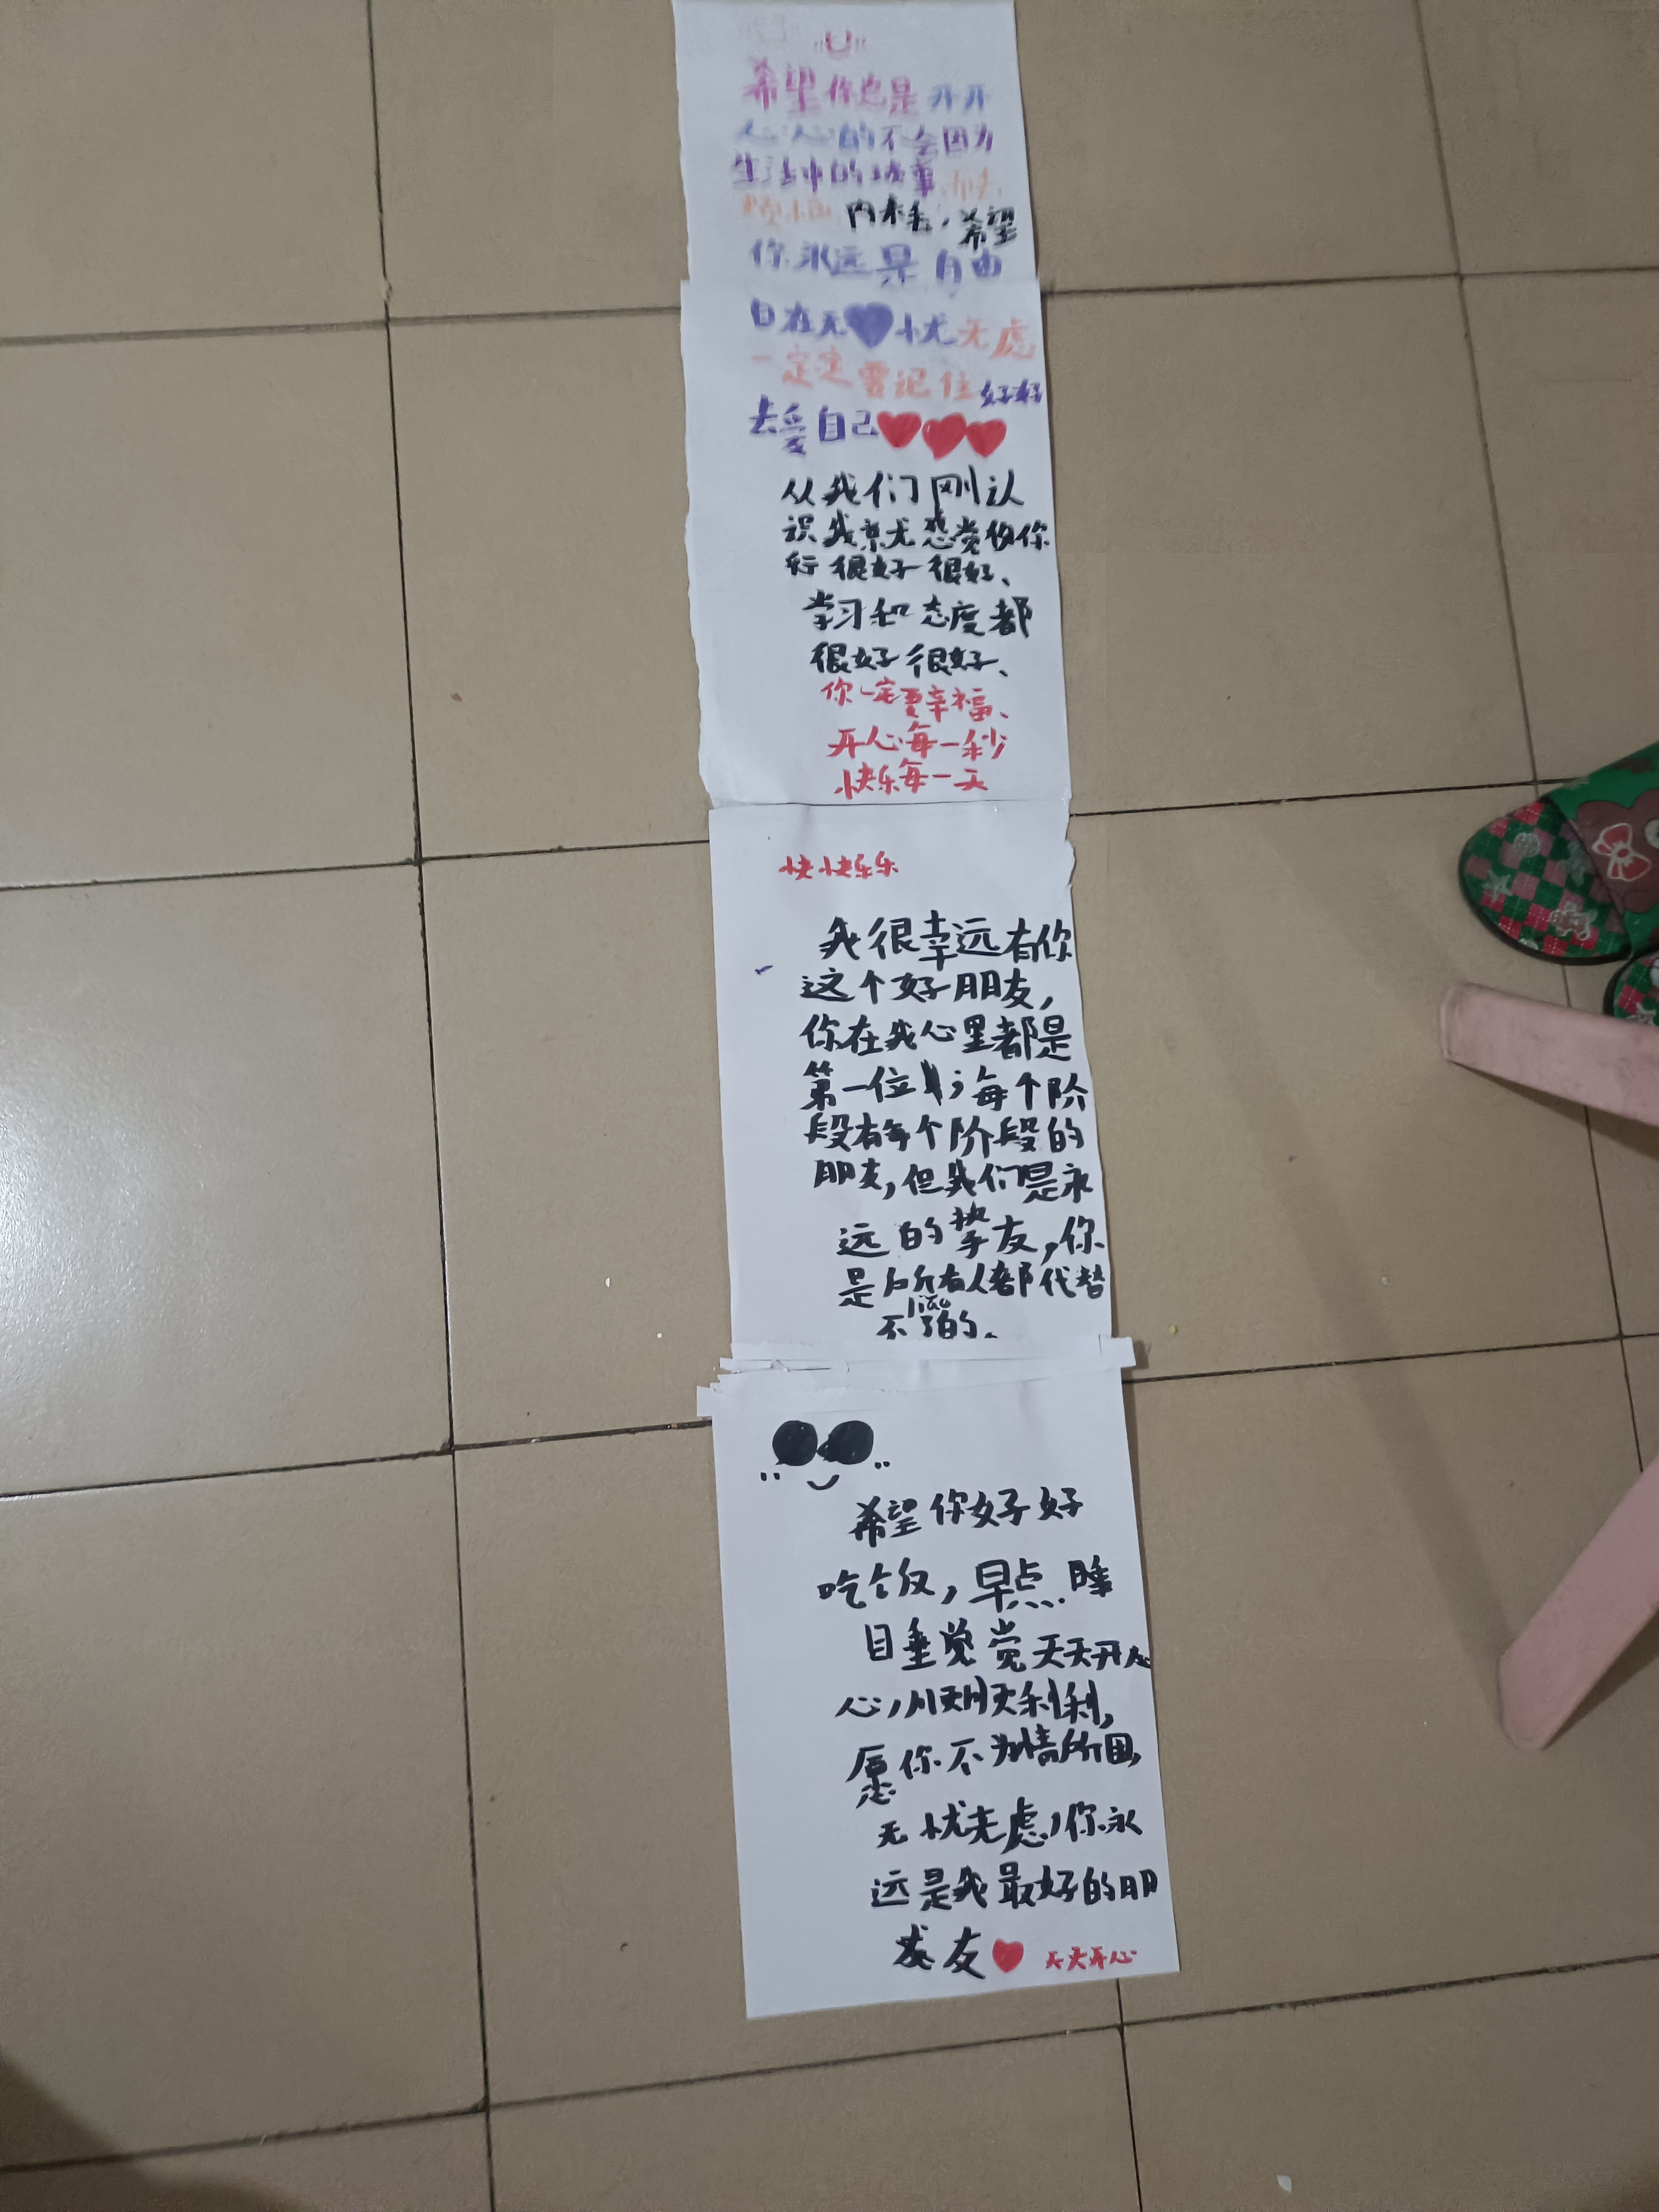 希望你也是开开
心心的不会因为
生活中的琐事而去
烦恼内耗，希望
你永远是自由
自在无忧无虑
一定定要记住好好
去爱自己
从我们刚认
识我就感觉你
很好很好、
学习和态度都
很好很好、
你一定要幸福、
开心每一秒
快乐每一天
快快乐乐
我很幸远有你
这个好朋友，
你在我心里都是
第一位，每个阶
段有每个阶段的
朋友，但我们是永
远的挚友，你
是所有人都代替
liao
不了的。
希望你好好
吃饭，早点睡
睡觉觉天天开心
心，顺顺利利，
愿你不为情所困，
无忧无虑，你永
远是我最好的朋
友 天天开心